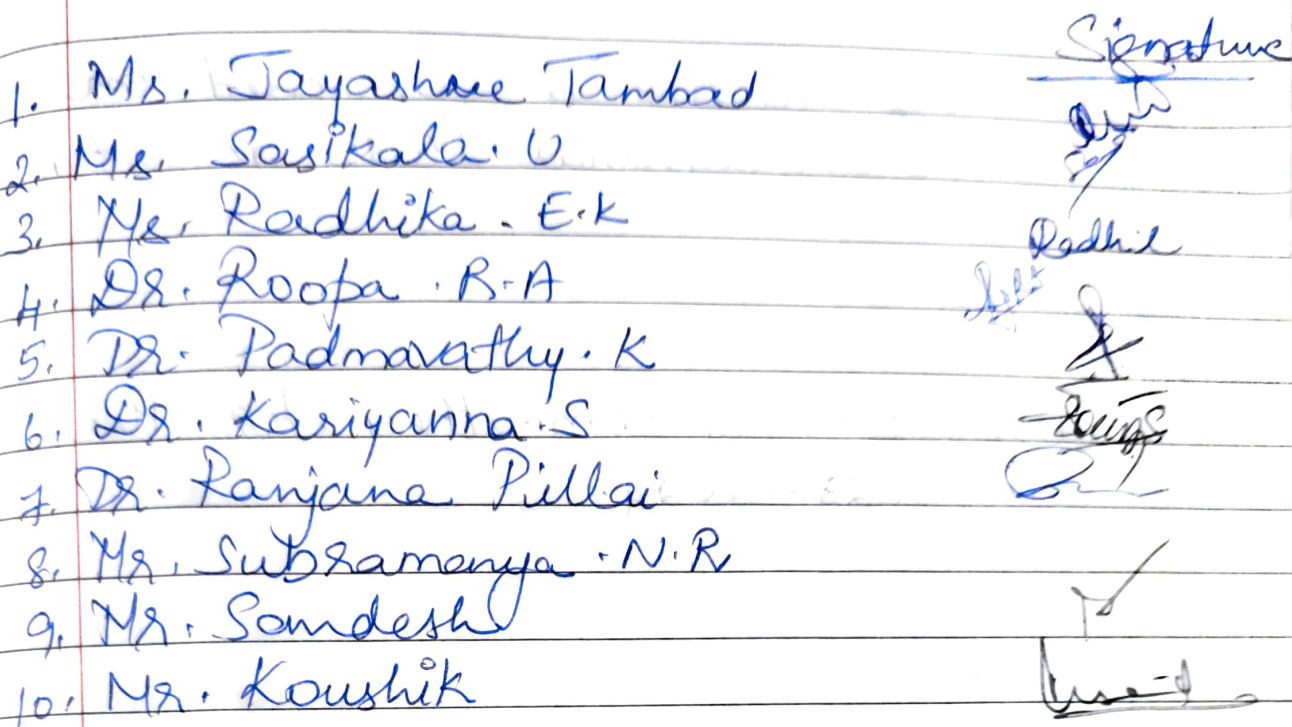 Signature
1. Ms. Jayashree Tambad
2. Ms. Sasikala. U
3. Ms. Radhika. E.K
4. Dr. Roopa. R.A
5. Dr. Padmavathy. K
6. Dr. Kariyanna. S
7. Dr. Ranjana Pillai
8. Mr. Subramanya. N.R
9. Mr. Sandesh
10. Mr. Koushik